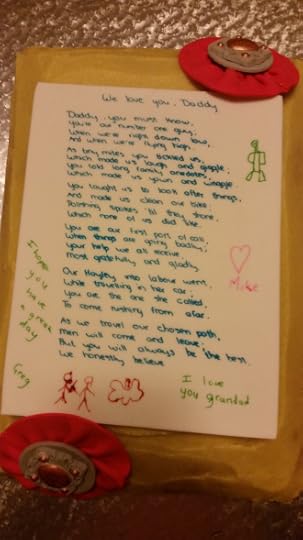 We love you, Daddy
Daddy, you must know,
you're our number one guy,
When we're right down low,
And when we're flying high.
As tiny mites you tickled us,
Which made us laugh and giggle,
You told long family anecdotes,
Which made us yawn and wriggle
You taught us to look after things,
And made us clean our bike
Polishing spokes 'til they shone,
Which none of us did like.
You are our first port of call,
When things are going badly,
your help we all receive,
most gratefully and gladly.
Our Hayley into labour went,
While travelling in the car,
You are the one she called,
To come rushing from afar.
As we travel our chosen path,
men will come and leave,
But you will always be the best,
We honestly believe.
Mike
I hope
you
have
a great
day
Greg
I love
you grandad